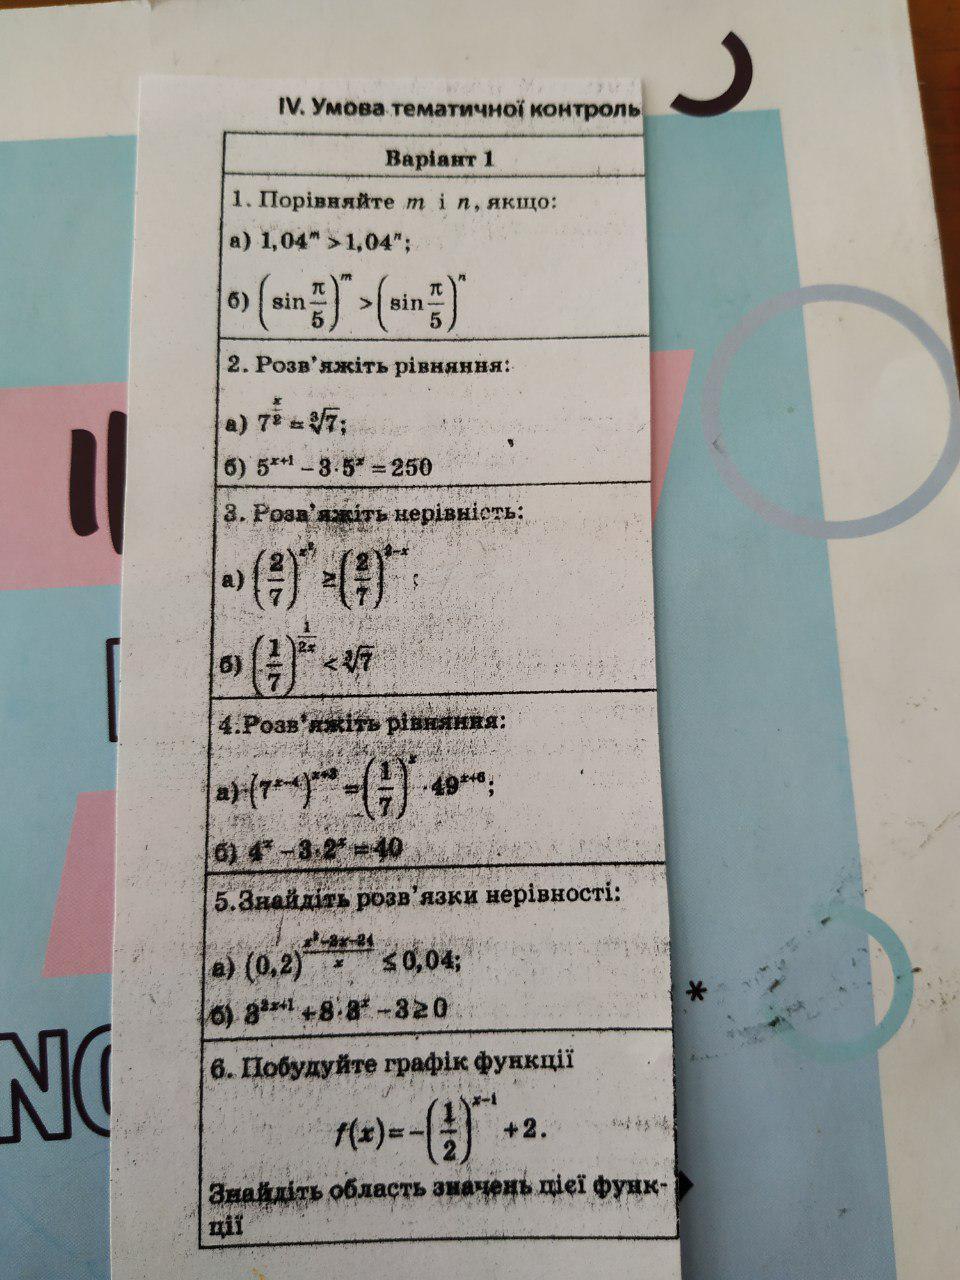 IV. Умова тематичної контроль
Варіант 1
1. Порівняйте m і n, якщо:
а) 1,04^m > 1,04^n;
б) (sin π/5)^m > (sin π/5)^n
2. Розв'яжіть рівняння:
а) 7^(x/2) = ∛7;
б) 5^(x+1) – 3·5^x = 250
3. Розв'яжіть нерівність:
а) (2/7)^(x²) ≥ (2/7)^(2–x);
б) (1/7)^(1/(2x)) < ∛7
4.Розв'яжіть рівняння:
а) (7^(x–4))^(x+3) = (1/7)^x · 49^(x+6);
б) 4^x – 3·2^x = 40
5.Знайдіть розв'язки нерівності:
а) (0,2)^((x²–2x–24)/x) ≤ 0,04;
б) 3^(2x+1) + 8·3^x – 3 ≥ 0
6. Побудуйте графік функції
f(x) = –(1/2)^(x–1) + 2.
Знайдіть область значень цієї функ-
ції